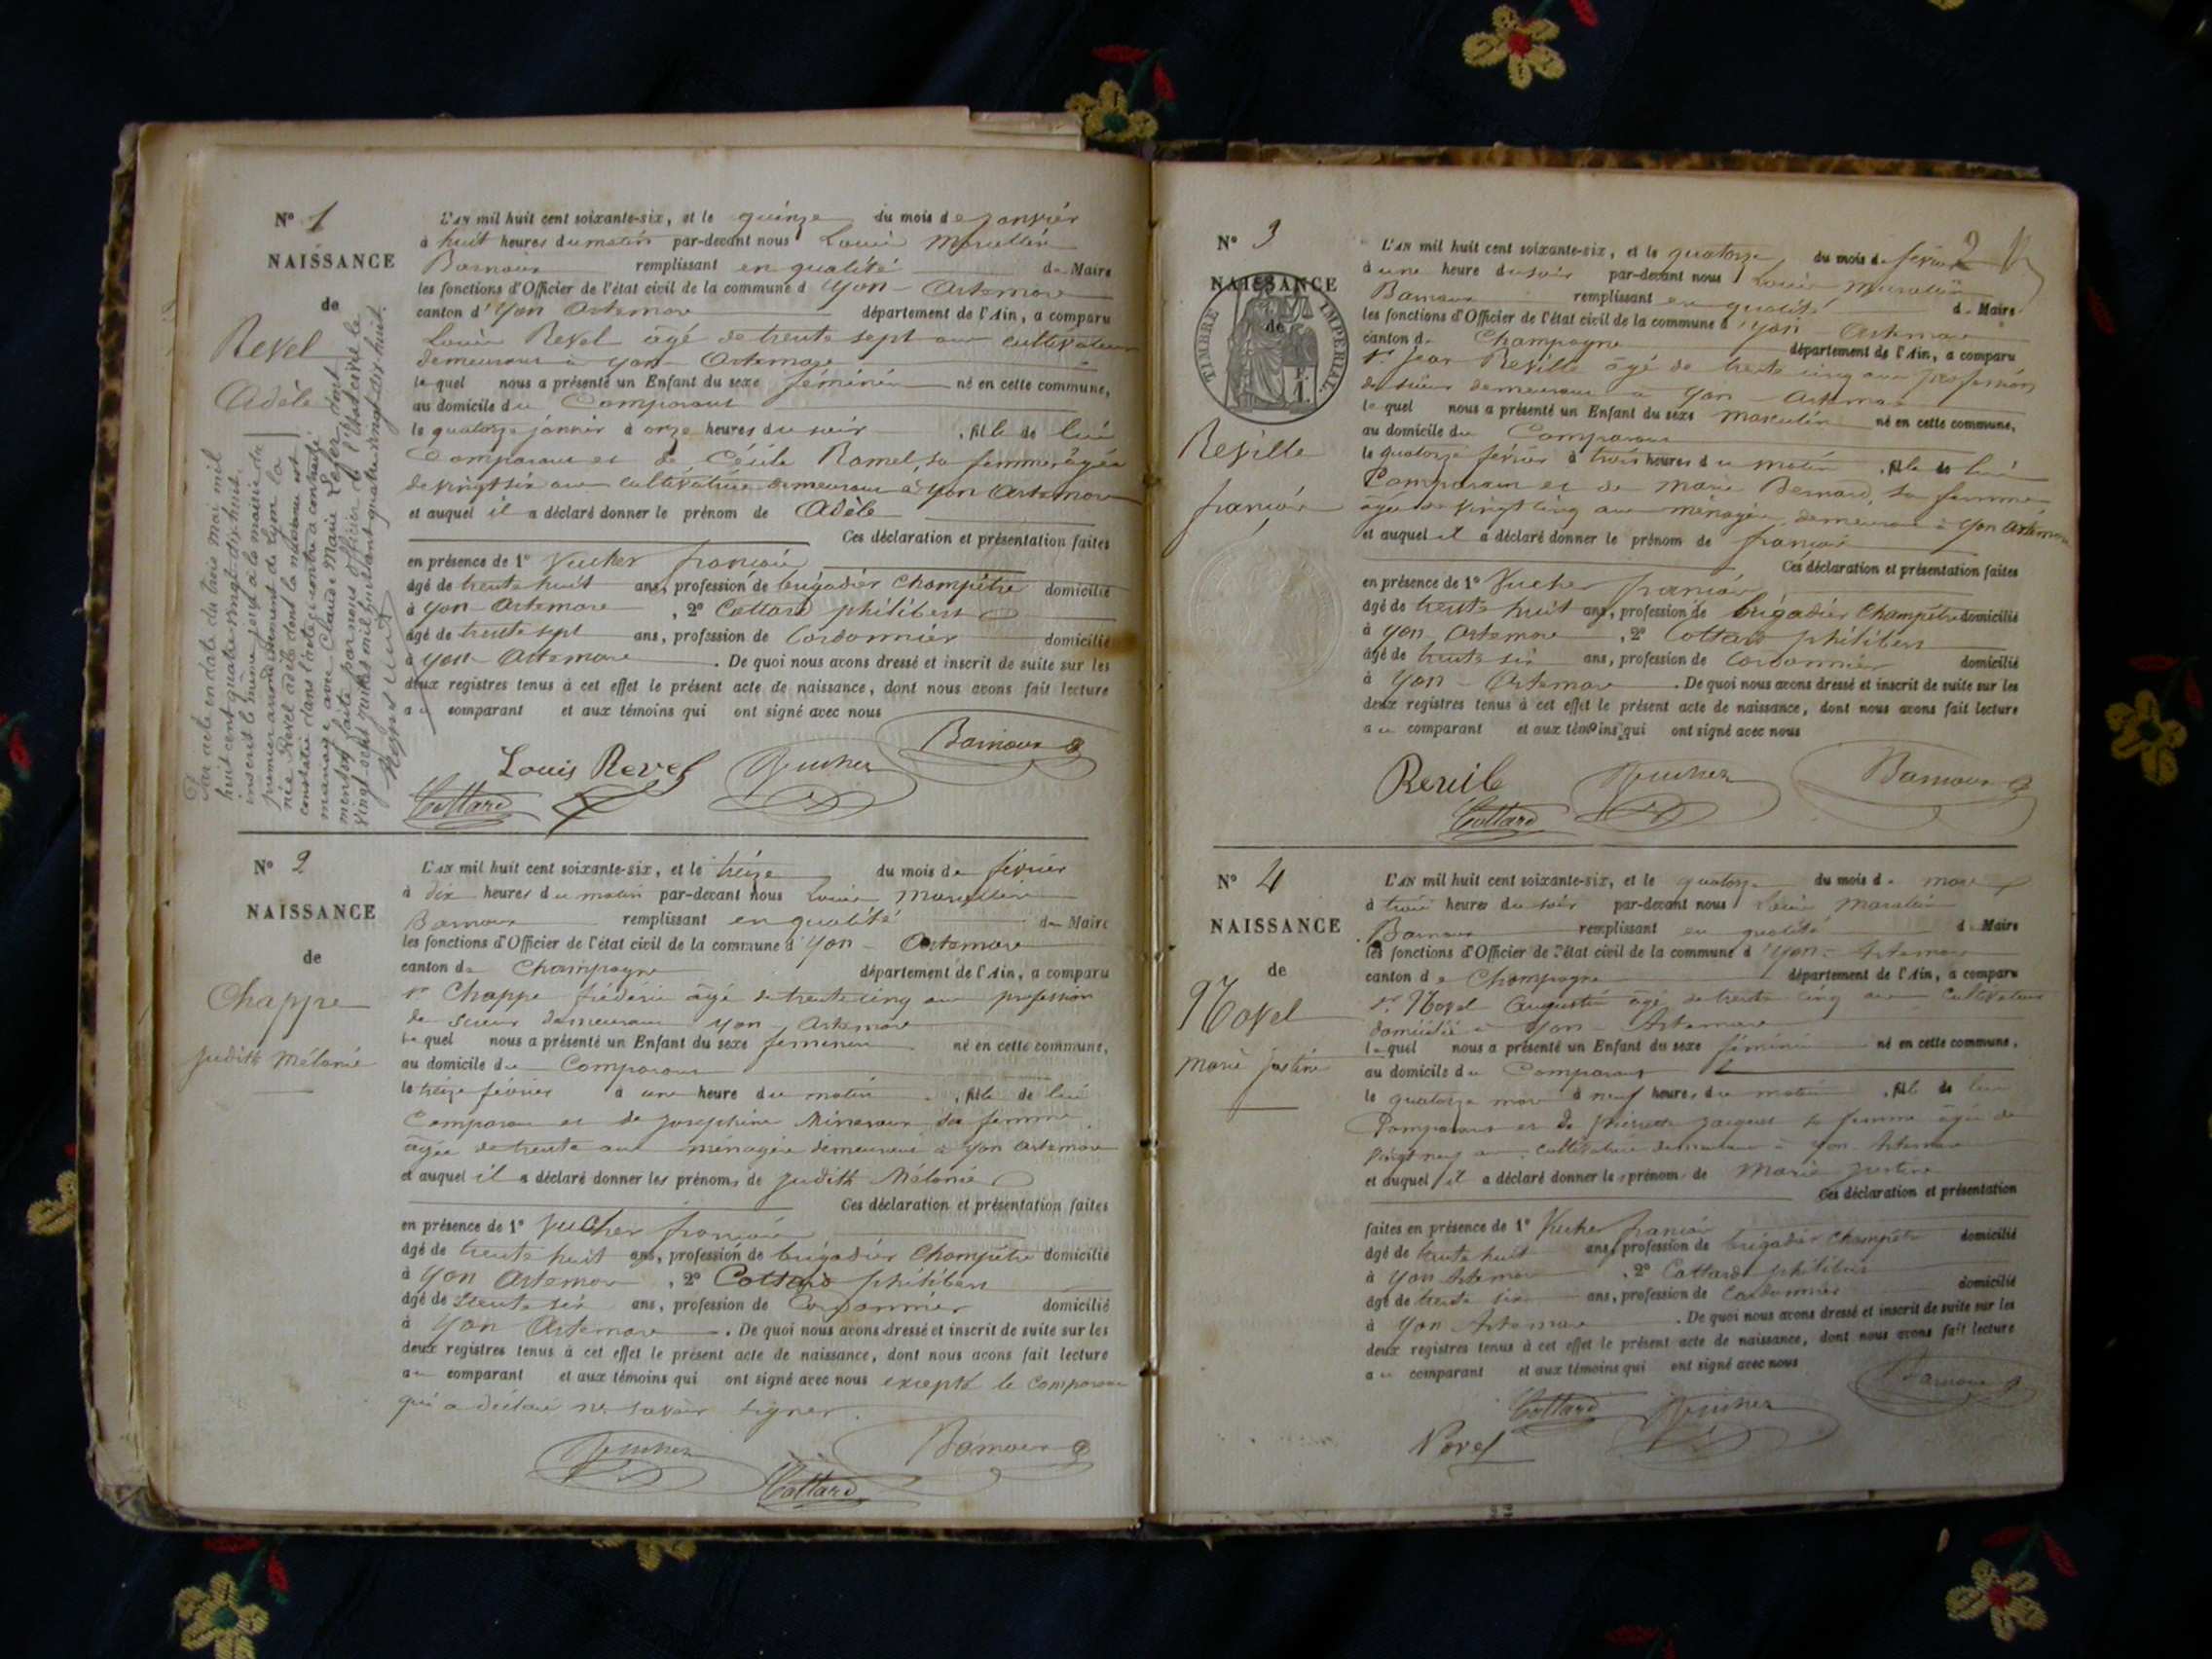 N° 1
NAISSANCE
de
Revel
Adèle
Par acte en date du trois mai mil
huit cent quatre-vingt-dix-huit,
inscrit le même jour à la mairie du
premier arrondissement de Lyon la
née Revel Adèle dont la naissance est
constatée dans l'acte ci-contre a contracté
mariage avec Claude Marie
mention faite par nous officier de l'état civil le
vingt-six mil huit cent quatre-vingt-dix-huit.
L'AN mil huit cent soixante-six, et le quinze du mois de janvier
à huit heures du matin par-devant nous Louis Marcellin
Barnoux remplissant en qualité de Maire
les fonctions d'Officier de l'état civil de la commune d'Yon-Artemare
canton d'Yon Artemare département de l'Ain, a comparu
Louis Revel âgé de trente sept ans cultivateur
demeurant à Yon-Artemare
lequel nous a présenté un Enfant du sexe féminin né en cette commune,
au domicile du Comparant
le quatorze janvier à onze heures du soir, fille de lui
Comparant et de Cécile Ramel, sa femme âgée
de vingt six ans cultivatrice demeurant à Yon Artemare
et auquel il a déclaré donner le prénom de Adèle
Ces déclaration et présentation faites
en présence de 1° Vucher françois
âgé de trente huit ans, profession de brigadier Champêtre domicilié
à Yon-Artemare, 2° Cottard philibert
âgé de trente sept ans, profession de Cordonnier domicilié
à Yon-Artemare. De quoi nous avons dressé et inscrit de suite sur les
deux registres tenus à cet effet le présent acte de naissance, dont nous avons fait lecture
au comparant et aux témoins qui ont signé avec nous
Louis Revel Vucher Barnoux
Cottard
N° 2
NAISSANCE
de
Chappe
Judith Mélanie
L'AN mil huit cent soixante-six, et le treize du mois de février
à dix heures du matin par-devant nous Louis Marcellin
Barnoux remplissant en qualité de Maire
les fonctions d'Officier de l'état civil de la commune d'Yon-Artemare
canton de Champagne département de l'Ain, a comparu
sr Chappe frédéric âgé de trente cinq ans profession
de scieur demeurant Yon Artemare
lequel nous a présenté un Enfant du sexe féminin né en cette commune,
au domicile du Comparant
le treize février à une heure du matin, fille de lui
Comparant et de Joséphine sa femme
âgée de trente ans ménagère demeurant à Yon Artemare
et auquel il a déclaré donner les prénoms de Judith Mélanie
Ces déclaration et présentation faites
en présence de 1° Vucher françois
âgé de trente huit ans, profession de brigadier Champêtre domicilié
à Yon Artemare, 2° Cottard philibert
âgé de trente six ans, profession de Cordonnier domicilié
à Yon Artemare. De quoi nous avons dressé et inscrit de suite sur les
deux registres tenus à cet effet le présent acte de naissance, dont nous avons fait lecture
au comparant et aux témoins qui ont signé avec nous excepté le Comparant
qui a déclaré ne savoir signer.
Vucher Barnoux
Cottard
2
N° 3
NAISSANCE
de
TIMBRE IMPERIAL
Reville
françois
L'AN mil huit cent soixante-six, et le quatorze du mois de février
à une heure du soir par-devant nous Louis Marcellin
Barnoux remplissant en qualité de Maire
les fonctions d'Officier de l'état civil de la commune d'Yon-Artemare
canton de Champagne département de l'Ain, a comparu
sr Jean Reville âgé de trente cinq ans profession
de scieur demeurant à Yon-Artemare
lequel nous a présenté un Enfant du sexe masculin né en cette commune,
au domicile du Comparant
le quatorze février à trois heures du matin, fils de lui
Comparant et de Marie Bernard, sa femme
âgée de vingt cinq ans ménagère demeurant à Yon Artemare
et auquel il a déclaré donner le prénom de françois
Ces déclaration et présentation faites
en présence de 1° Vucher françois
âgé de trente huit ans, profession de brigadier Champêtre domicilié
à Yon Artemare, 2° Cottard philibert
âgé de trente six ans, profession de Cordonnier domicilié
à Yon-Artemare. De quoi nous avons dressé et inscrit de suite sur les
deux registres tenus à cet effet le présent acte de naissance, dont nous avons fait lecture
au comparant et aux témoins qui ont signé avec nous
Revile Vucher Barnoux
Cottard
N° 4
NAISSANCE
de
Novel
Marie Justine
L'AN mil huit cent soixante-six, et le quatorze du mois de mars
à trois heures du soir par-devant nous Louis Marcellin
Barnoux remplissant en qualité de Maire
les fonctions d'Officier de l'état civil de la commune d'Yon-Artemare
canton de Champagne département de l'Ain, a comparu
sr Novel Augustin âgé de trente cinq ans Cultivateur
domicilié à Yon-Artemare
lequel nous a présenté un Enfant du sexe féminin né en cette commune,
au domicile du Comparant
le quatorze mars à neuf heures du matin, fille de lui
Comparant et de Pierrette Jacquet sa femme âgée de
vingt neuf ans cultivatrice demeurant à Yon-Artemare
et auquel il a déclaré donner les prénoms de Marie Justine
Ces déclaration et présentation
faites en présence de 1° Vucher françois
âgé de trente huit ans, profession de brigadier Champêtre domicilié
à Yon Artemare, 2° Cottard philibert
âgé de trente six ans, profession de Cordonnier domicilié
à Yon Artemare. De quoi nous avons dressé et inscrit de suite sur les
deux registres tenus à cet effet le présent acte de naissance, dont nous avons fait lecture
au comparant et aux témoins qui ont signé avec nous
Cottard Vucher Barnoux
Novel